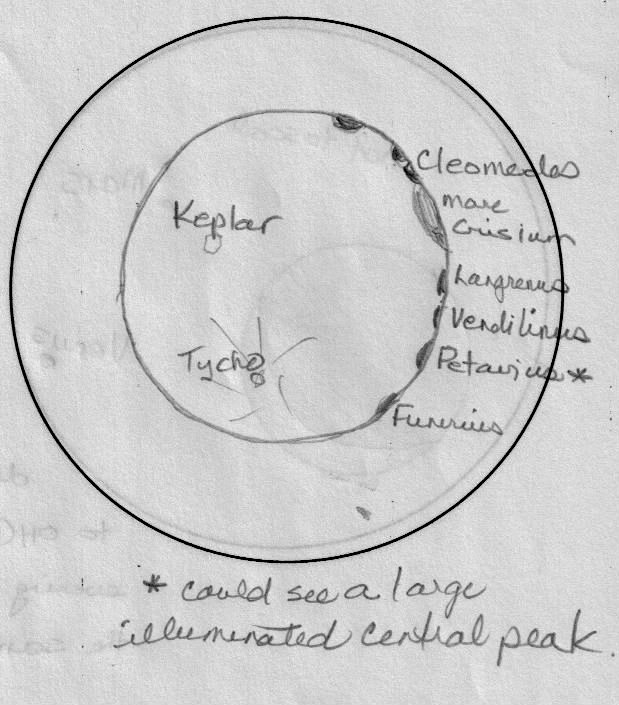 Cleomedes
mare
Crisium
Keplar
Langrenus
Vendilinus
Tycho
Petavius*
Funerius
* could see a large
illuminated central peak.